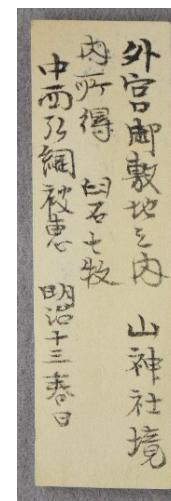 外宮御敷地之内 山神社境
内所得 臼石七枚
中西弘綱被恵 明治十三春日